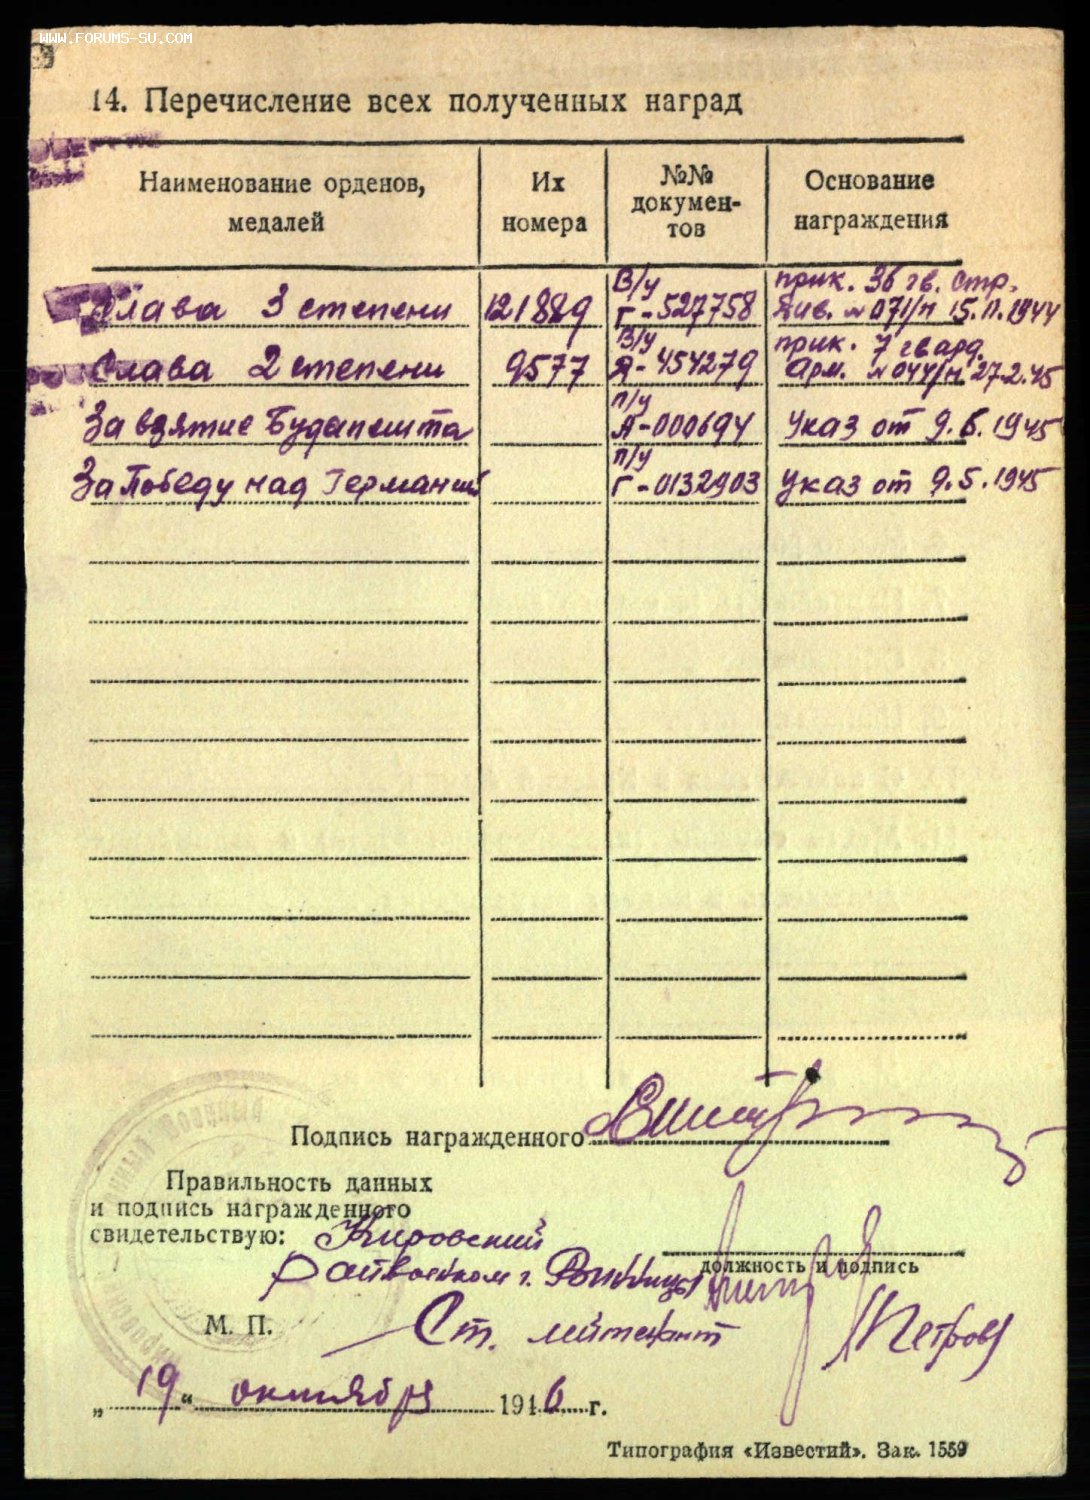 WWW.FORUMS-SU.COM
14. Перечисление всех полученных наград
Наименование орденов, медалей
Их номера
№№ докумен-тов
Основание награждения
Слава 3 степени 121889 В/у Г-527758 прик. 36 гв. стр. див. № 071/н 15.11.1944
Слава 2 степени 9577 В/у А-454279 прик. 7 гвард. Арм. № 044/н 27.2.45
За взятие Будапешта П/у А-000694 Указ от 9.6.1945
За Победу над Германией П/у Г-0132903 Указ от 9.5.1945
Подпись награжденного
Правильность данных
и подпись награжденного
свидетельствую: Кировский
Райвоенком г.
должность и подпись
М. П. Ст. лейтенант Петров
„19“ октября 1946 г.
Типография «Известий». Зак. 1559